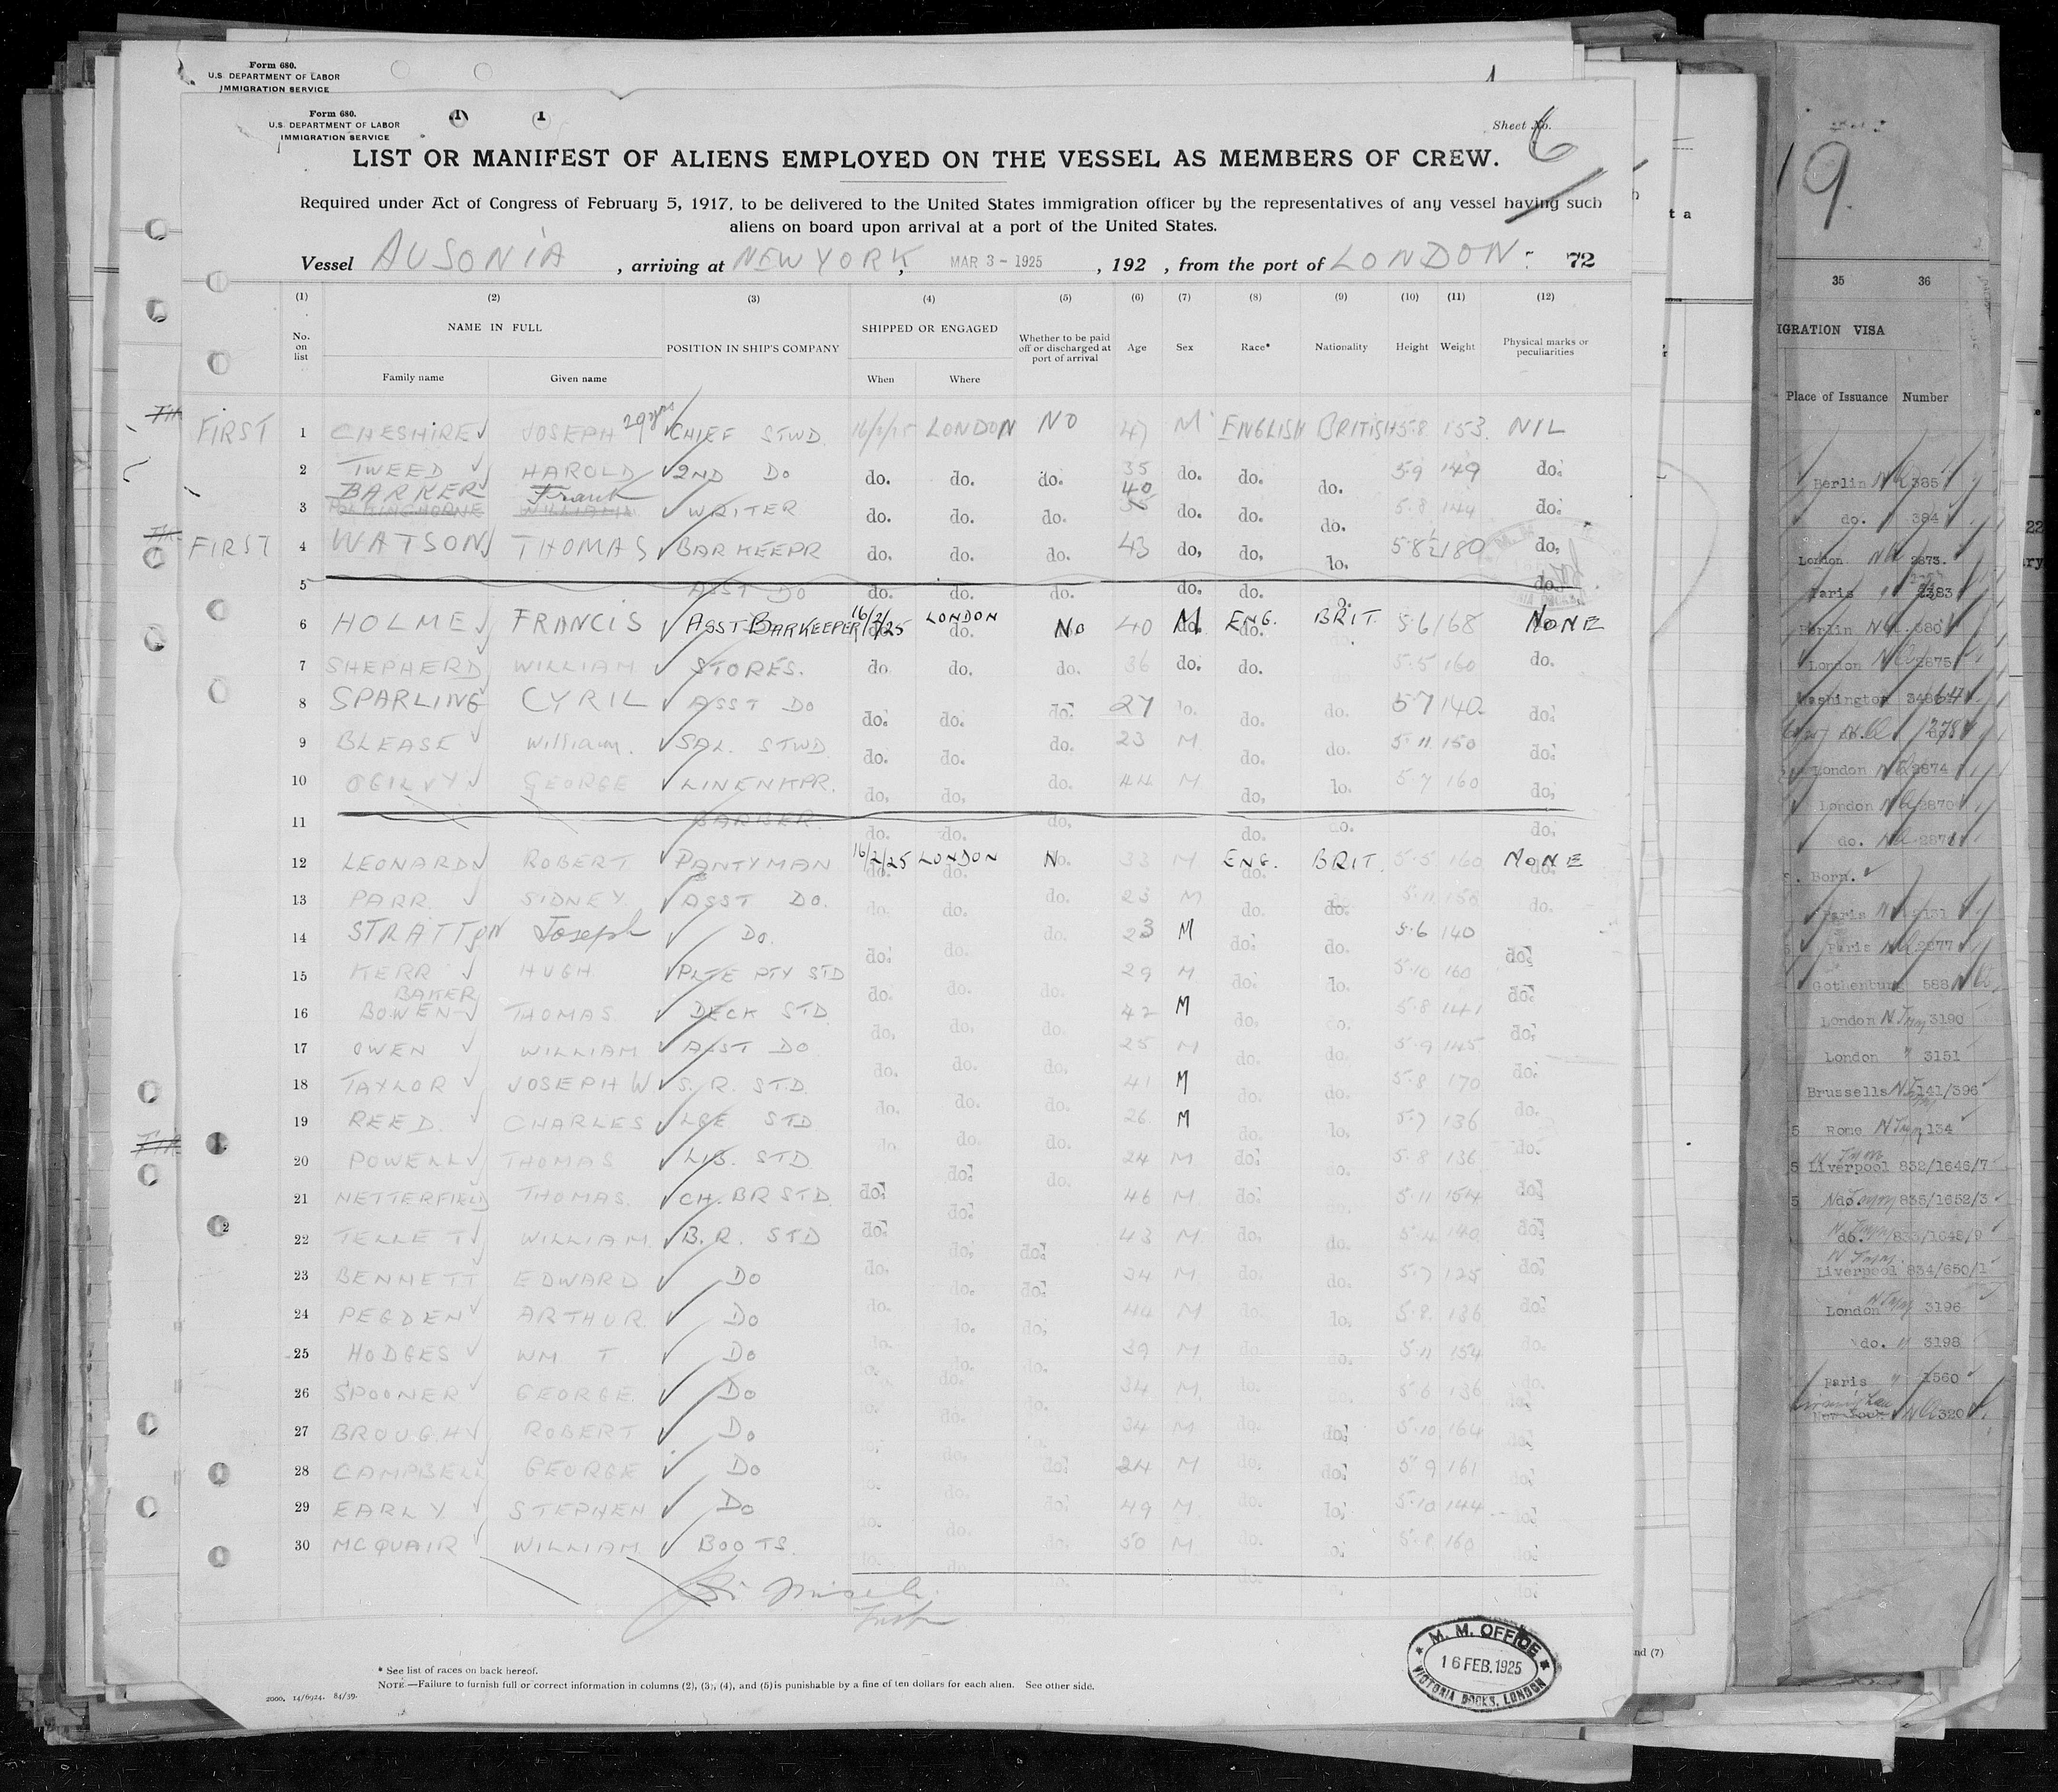 Form 680.
U.S. DEPARTMENT OF LABOR
IMMIGRATION SERVICE
Form 680.
U.S. DEPARTMENT OF LABOR
IMMIGRATION SERVICE
Sheet No. 6
LIST OR MANIFEST OF ALIENS EMPLOYED ON THE VESSEL AS MEMBERS OF CREW.
Required under Act of Congress of February 5, 1917, to be delivered to the United States immigration officer by the representatives of any vessel having such
aliens on board upon arrival at a port of the United States.
Vessel AUSONIA, arriving at NEW YORK, MAR 3 - 1925, 192 , from the port of LONDON. 72
(1) (2) (3) (4) (5) (6) (7) (8) (9) (10) (11) (12)
No. on list NAME IN FULL POSITION IN SHIP'S COMPANY SHIPPED OR ENGAGED Whether to be paid off or discharged at port of arrival Age Sex Race* Nationality Height Weight Physical marks or peculiarities
Family name Given name When Where
FIRST 1 CHESHIRE JOSEPH 29yrs CHIEF STWD. 16/2/25 LONDON NO 47 M ENGLISH BRITISH 5.8 153. NIL
2 TWEED HAROLD 2ND DO do. do. do. 35 do. do. do. 5.9 149 do.
BARKER Frank 40
3 WILLIAM WRITER do. do. do. do. do. do. 5.8 144 do.
FIRST 4 WATSON THOMAS BARKEEPR do. do. do. 43 do. do. lo. 5.8½ 180 do.
5 ASST DO do. do. do. do. do. do.
6 HOLME FRANCIS ASST BARKEEPER 16/2/25 LONDON No 40 M ENG. BRIT. 5.6 168 NONE
7 SHEPHERD WILLIAM STORES. do. do. do. 36 do. do. 5.5 160 do.
8 SPARLING CYRIL ASST DO do. do. do. 27 do. do. do. 5.7 140. do.
9 BLEASE William. SAL. STWD do. do. do. 23 M do. do. 5.11 150 do.
10 OGILVY GEORGE LINENKPR. do. do. do. 44 M do. lo. 5.7 160 do.
11 BARBER. do. do. do. do. do. do.
12 LEONARD ROBERT PANTYMAN 16/2/25 LONDON No. 33 M ENG. BRIT. 5.5 160 NONE
13 PARR. SIDNEY. ASST DO. do. do. do. 23 M do. do. 5.11 150 do.
14 STRATTON Joseph DO. do. do. do. 23 M do. do. 5.6 140 do.
15 KERR HUGH PLTE PTY STD do. do. do. 29 M do. lo. 5.10 160 do.
BAKER
16 BOWEN THOMAS DECK STD do. do. do. 42 M do. do. 5.8 141 do.
17 OWEN WILLIAM ASST DO do. do. do. 25 M do. do. 5.9 145 do.
18 TAYLOR JOSEPH W. S. R. STD. do. do. do. 41 M do. do. 5.8 170 do.
19 REED. CHARLES LGE STD do. do. do. 26 M do. lo. 5.7 136 do.
20 POWELL THOMAS LIB. STD do. do. do. 24 M do. do. 5.8 136 do.
21 NETTERFIELD THOMAS. CH. BR STD do. do. 46 M do. do. 5.11 154 do.
22 TELLET WILLIAM. B. R. STD do. do. do. 43 M do. do. 5.4 140 do.
23 BENNETT EDWARD DO do. do. do. 34 M do. do. 5.7 125 do.
24 PEGDEN ARTHUR. DO do. do. do. 44 M do. lo. 5.8 136 do.
25 HODGES WM. T DO do. do. do. 39 M do. do. 5.11 154 do.
26 SPOONER GEORGE. DO do. do. do. 34 M do. do. 5.6 136 do.
27 BROUGH ROBERT DO do. do. do. 34 M do. do. 5.10 164 do.
28 CAMPBELL GEORGE DO do. do. do. 24 M do. do. 5.9 161 do.
29 EARLY STEPHEN DO do. do. do. 49 M do. lo. 5.10 144 do.
30 MCQUAIR WILLIAM BOOTS. do. do. do. 50 M do. do. 5.8 160 do.
* See list of races on back hereof.
NOTE.—Failure to furnish full or correct information in columns (2), (3), (4), and (5) is punishable by a fine of ten dollars for each alien. See other side.
2000. 14/6924. 84/39.
M. M. OFFICE
16 FEB. 1925
VICTORIA DOCKS, LONDON
nd (7)
19.
35 36
IGRATION VISA
Place of Issuance Number
Berlin 385
do. 384
London 2873.
Paris 2383
Berlin 380
London 2875
Washington
London 2874
London 2870
do. 2871
Born.
Paris 2131
Paris 2877
Gothenburg 588
London 3190
London " 3151
Brussells 141/396
Rome 134
Liverpool 832/1646/7
do. 835/1652/3
do. 833/1648/9
Liverpool 834/650/1
London 3196
do. " 3198
Paris " 1560
New York 320